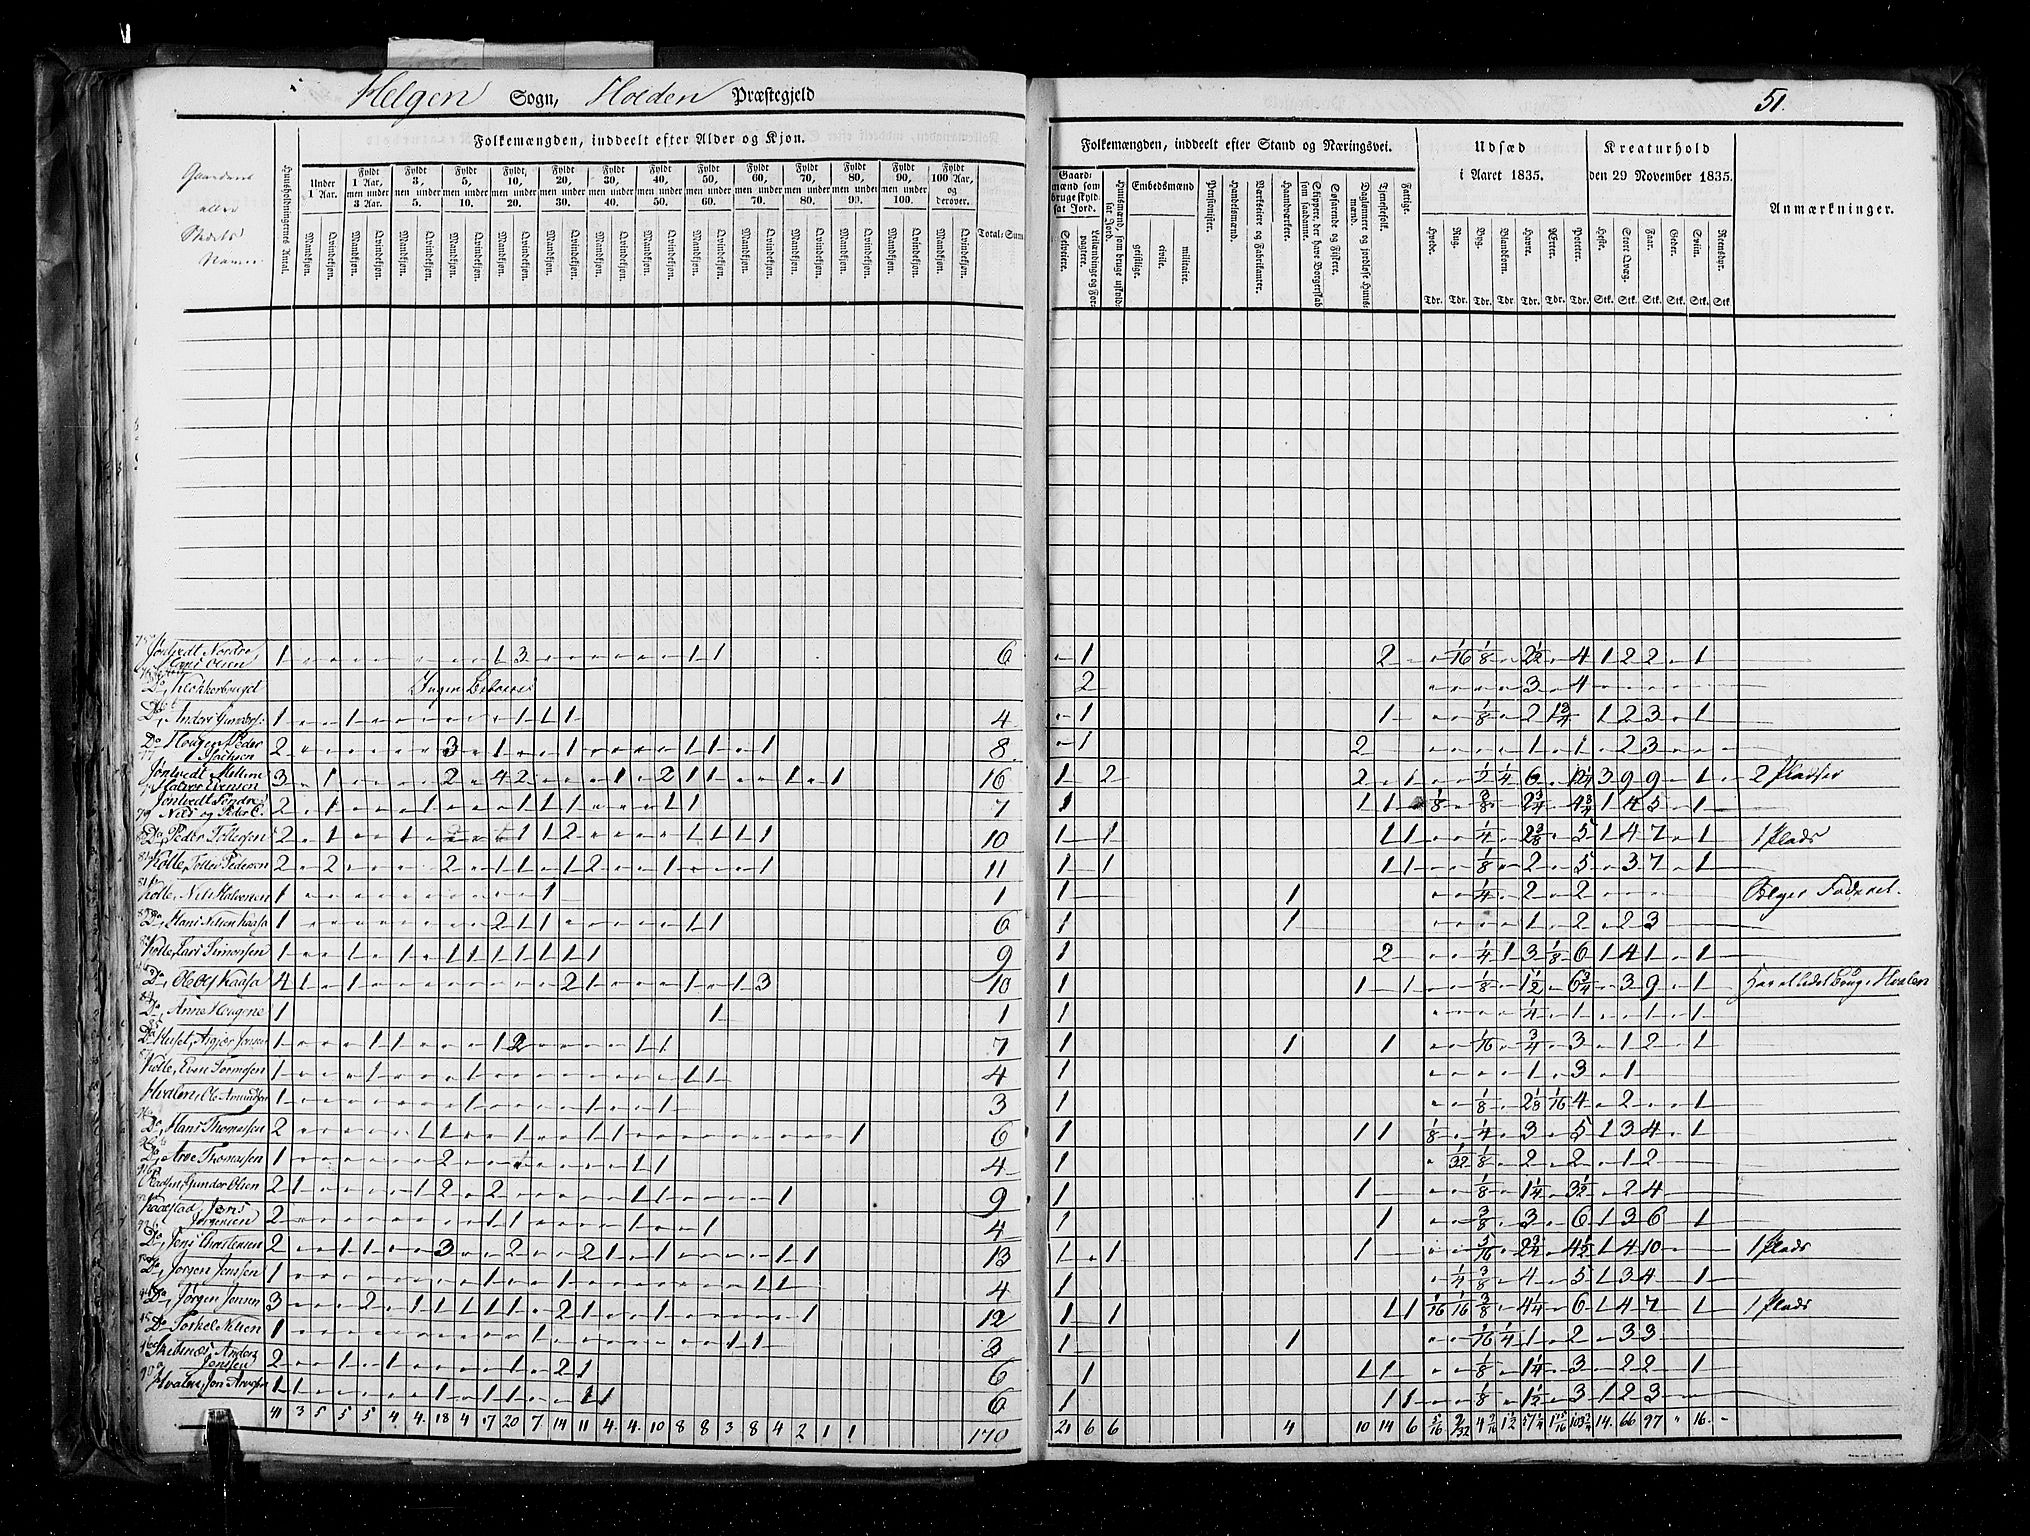 Helgen Sogn, Holden Præstegjeld
51.
Gaardenes eller Stedets Navn
Huusholdningernes Antal.
Folkemængden, inddeelt efter Alder og Kjøn.
Under 1 Aar.
Fyldt 1 Aar, men under 3 Aar.
Fyldt 3, men under 5.
Fyldt 5, men under 10.
Fyldt, 10, men under 20.
Fyldt 20, men under 30.
Fyldt 30, men under 40.
Fyldt 40, men under 50.
Fyldt 50, men under 60.
Fyldt 60, men under 70.
Fyldt 70, men under 80.
Fyldt 80, men under 90.
Fyldt 90, men under 100.
Fyldt 100 Aar, og derover.
Mandkjøn. Qvindekjøn.
Total-Sum
Folkemængden, inddeelt efter Stand og Næringsvei.
Gaardmænd som bruge skyldsat Jord.
Selveiere.
Leilændinge og Forpagtere.
Huusmænd, som bruge uskyldsat Jord.
Embedsmænd
geistlige.
civile.
militaire.
Pensionister.
Handelsmænd.
Værkseiere og Fabrikanter.
Handværkere.
Skippere, der have Borgerskab som saadanne.
Søfarende og Fiskere.
Daglønnere og jordløse Huusmænd.
Tjenestefolk.
Fattige.
Udsæd i Aaret 1835.
Hvede. Rug. Byg. Blandkorn. Havre. Ærter. Poteter.
Tdr. Tdr. Tdr. Tdr. Tdr. Tdr. Tdr.
Kreaturhold den 29 November 1835.
Heste. Stort Qvæg. Faar. Geder. Sviin. Rensdyr.
Stk. Stk. Stk. Stk. Stk. Stk.
Anmærkninger.
Jøntvedt Nordre Hans Olsen 1 1 3 1 1 6 1 2 1/16 1/8 2 1/2 4 1 2 2 1
Do, Klokkerbruget Ingen Beboere 2 3 4
Do, Anders Gunders: 1 1 1 1 1 4 1 1 1/8 2 1 3/4 1 2 3 1
Do Haugen, Peder Isachsen 2 3 1 1 1 1 1 8 1 2 1 1 2 3
Jøntvedt Mellem Halvor Evensen 3 1 2 4 2 1 2 1 1 1 1 16 1 2 2 1 1/2 1/4 6 12 1/4 3 9 9 1 2 Pladser
Jøntvedt Søndre Nils og Peder E. 2 1 1 1 1 1 1 1 7 1 1 1 1/8 3/8 2 3/4 4 3/4 1 4 5 1
Do, Peder Tollefsen 2 1 1 1 1 2 1 1 1 1 10 1 1 1 1 1/4 2 3/8 5 1 4 7 1 1 Plads
Kolle, Tollef Pedersen 2 2 2 1 1 1 2 1 1 11 1 1 1 1 1/8 2 5 3 7 1
Kolle, Nils Halvorsen 1 1 1 1 1 1/4 2 2
Do, Hans Nilsen Kaasa 1 2 1 1 1 1 6 1 1 1 2 2 3
Kolle, Lars Simonsen 1 1 1 1 1 1 1 1 1 1 9 1 2 1/4 1 3 1/8 6 1 4 1 1
Do, Ole Kaasa 4 1 1 2 1 1 1 3 10 1 1 1 1/8 1 1/2 6 3/4 3 9 1
Do, Anne Haugene 1 1 1 1 1/4 1 1 1
Do Huset, Asgjær Jonsen 1 1 1 1 2 1 1 7 1 1 1 1/16 3/4 3 1 2 1
Kolle, Even Tormosen 1 1 1 1 1 4 1 1 3 1
Hvalen, Ole Amundsen 1 1 1 1 3 1 1/8 2 1/8 1/16 4 2 1
Do, Hans Thomassen 2 1 1 1 1 1 1 6 1 1 1 1/8 1/4 3 5 1 3 4 1
Do, Arve Thomassen 1 2 1 1 4 1 1/32 1/8 2 2 1 2
Gunder Olsen 2 1 1 2 2 1 1 1 9 1 1 1/8 1 1/4 3 1/2 2 4
Jens Jørgensen 2 1 1 1 1 4 1 1 3/8 3 6 1 3 6 1
Do, Jens Christensen 2 1 1 3 2 2 1 1 1 13 1 1 1 5/16 2 3/4 4 1/2 1 4 10 1 Plads
Do, Jørgen Jenssen 1 1 1 1 1 4 1 1/4 3/8 4 5 1 3 4 1
Do, Jørgen Jensen 3 2 1 1 1 1 1 2 1 1 1 12 1 1 1 1 1/16 1/16 3/8 4 1/4 6 1 4 7 1 1 Plads
Do Torkel Nilsen 1 1 1 1 3 1 1 1/16 1/4 1 2 3 3
Anders Jonssen 2 1 1 1 2 1 6 1 1 1 1/8 1 1/4 3 2 2 1
Hvalen, Jon Arvesen 1 1 1 1 1 1 1 6 1 1 1 1/8 1 1/2 3 1 2 3
41 3 5 5 5 4 4 18 4 17 20 7 14 11 4 4 10 8 8 3 8 4 2 1 1 170 21 6 6 4 10 14 6 5/16 9/32 4 9/16 1 1/2 57 1/4 1 15/16 103 3/4 14. 66 97 " 16. -